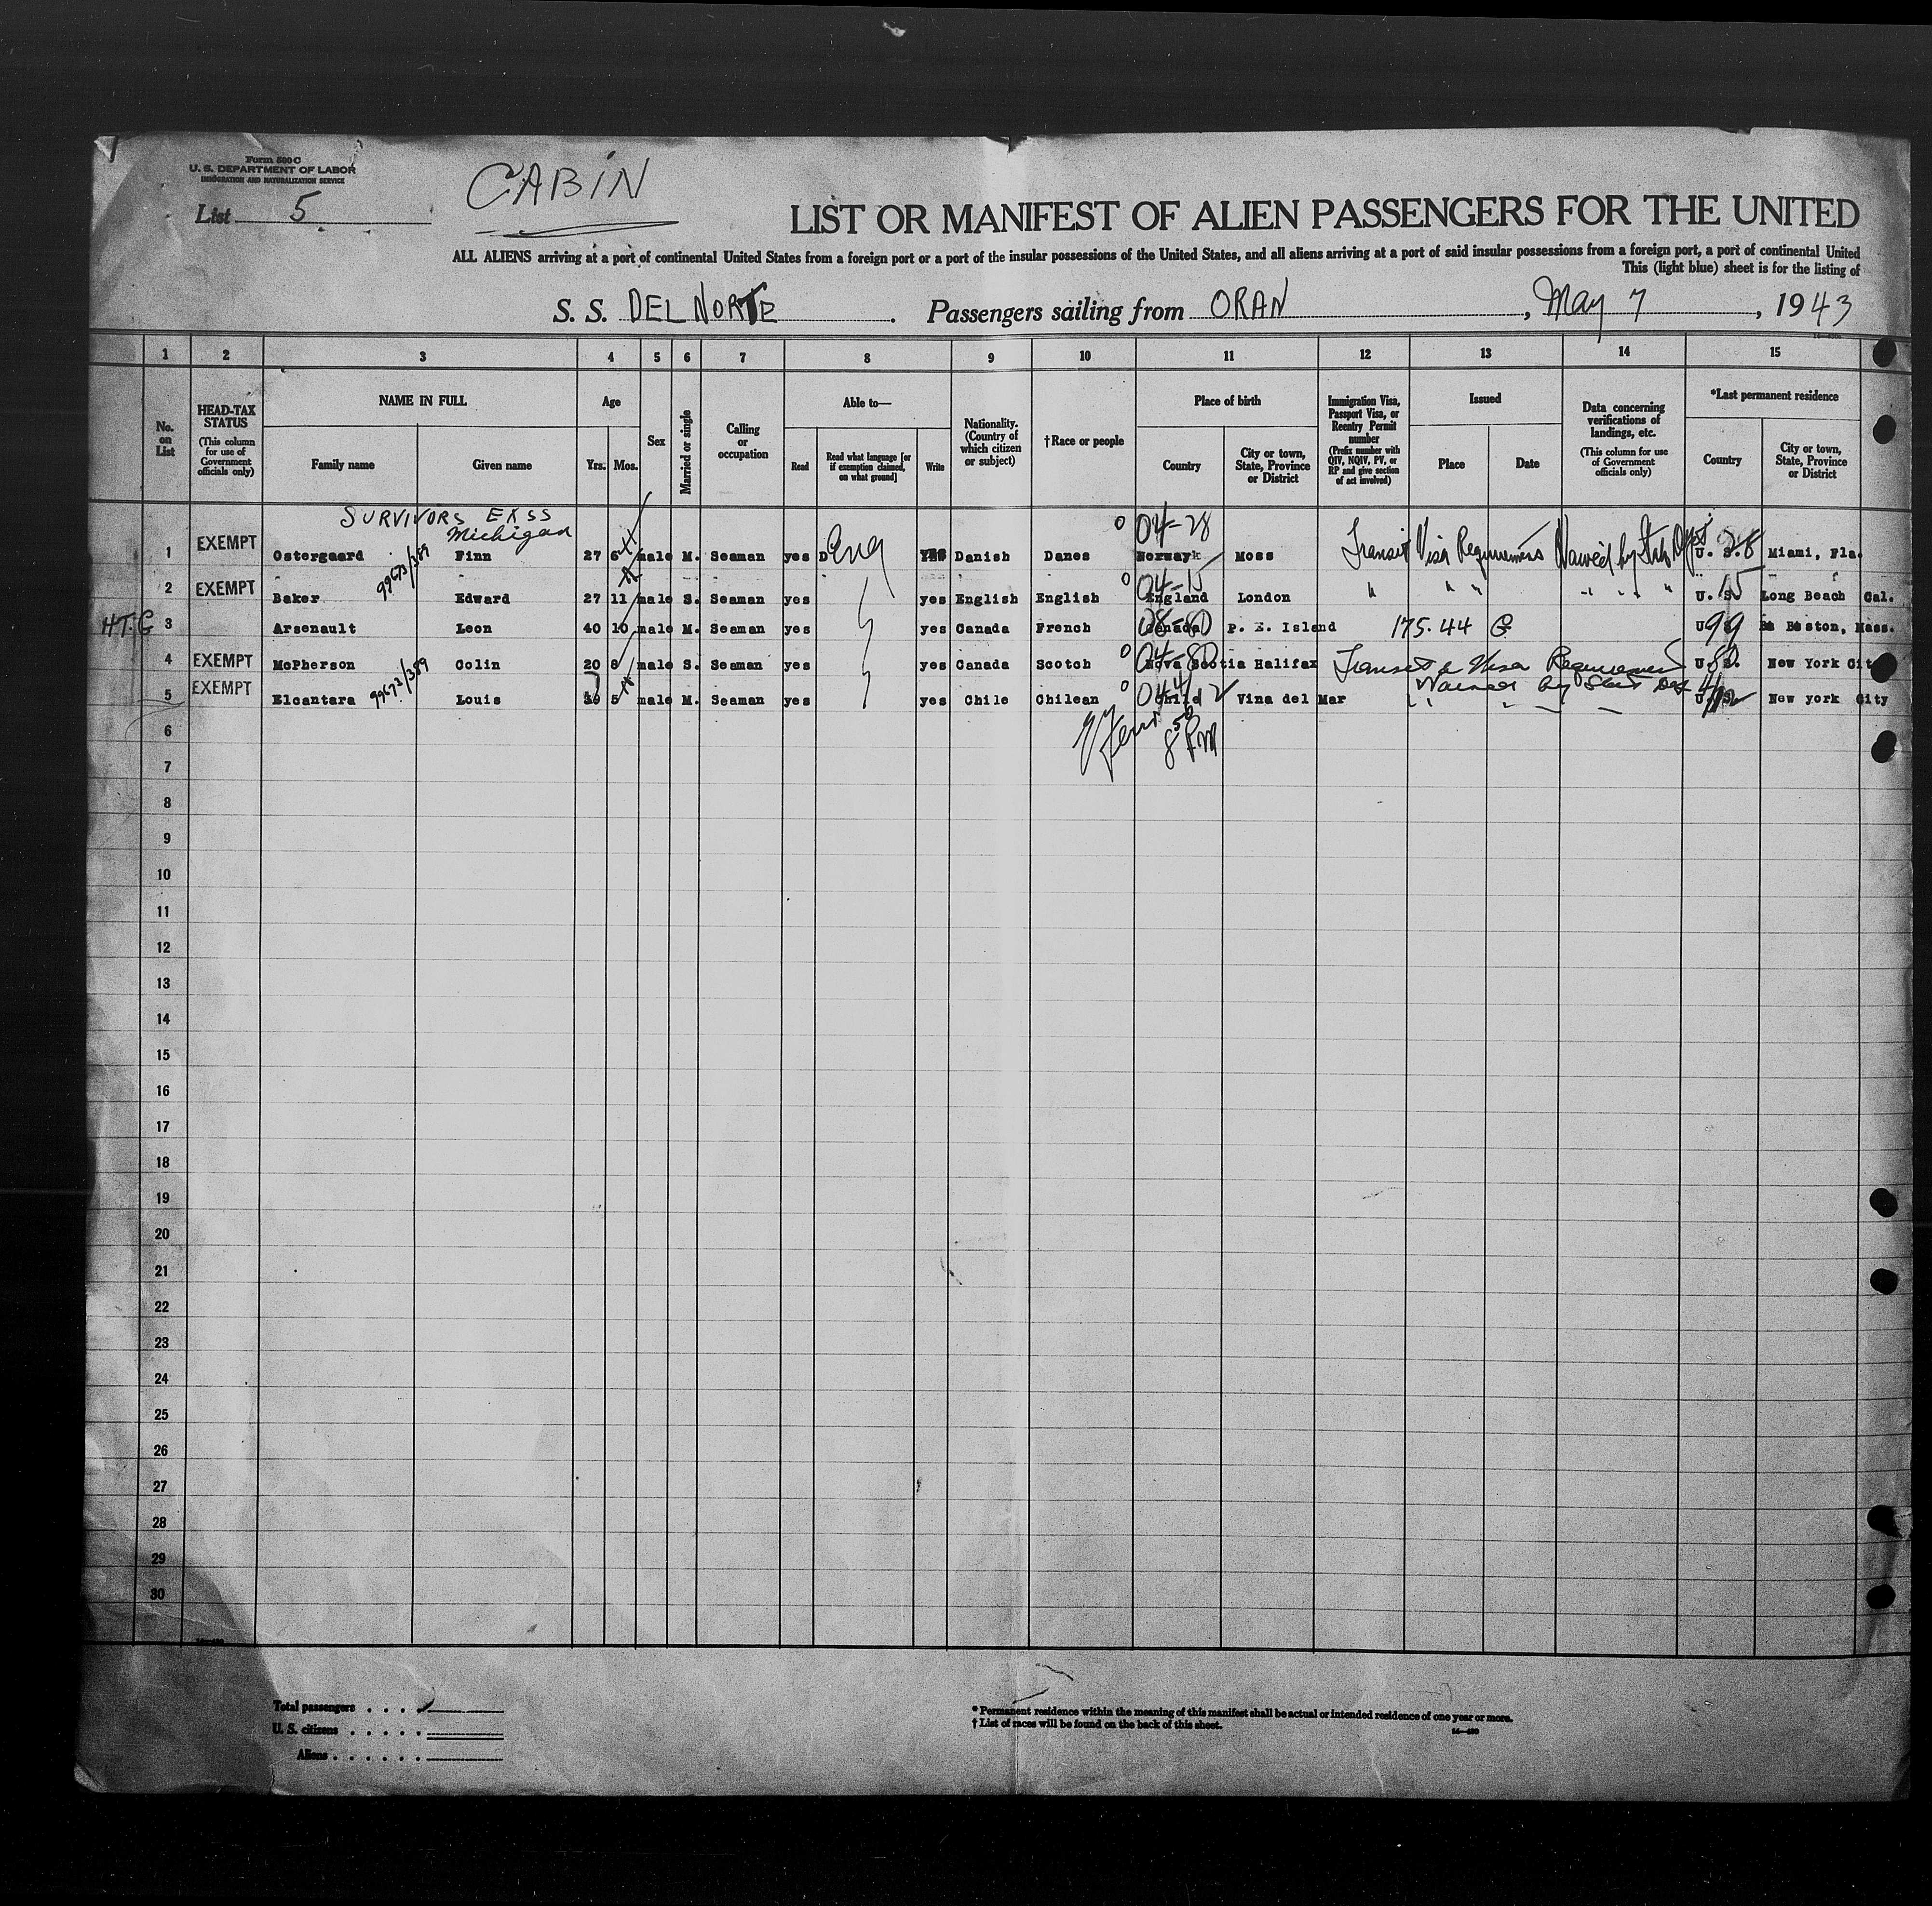 Form 500 C
U. S. DEPARTMENT OF LABOR
IMMIGRATION AND NATURALIZATION SERVICE
List 5
CABIN
LIST OR MANIFEST OF ALIEN PASSENGERS FOR THE UNITED
ALL ALIENS arriving at a port of continental United States from a foreign port or a port of the insular possessions of the United States, and all aliens arriving at a port of said insular possessions from a foreign port, a port of continental United
This (light blue) sheet is for the listing of
S. S. DEL NORTE . Passengers sailing from ORAN , May 7 , 1943
1 2 3 4 5 6 7 8 9 10 11 12 13 14 15
No. on List
HEAD-TAX STATUS (This column for use of Government officials only)
NAME IN FULL
Family name Given name
Age
Yrs. Mos.
Sex
Married or single
Calling or occupation
Able to—
Read
Read what language [or if exemption claimed, on what ground]
Write
Nationality. (Country of which citizen or subject)
†Race or people
Place of birth
Country
City or town, State, Province or District
Immigration Visa, Passport Visa, or Reentry Permit number (Prefix number with QIV, NQIV, PV, or RP and give section of act involved)
Issued
Place Date
Data concerning verifications of landings, etc. (This column for use of Government officials only)
*Last permanent residence
Country
City or town, State, Province or District
SURVIVORS EX SS
Michigan
04-28
1 EXEMPT Ostergaard 99673/389 Finn 27 6 male M. Seaman yes Eng YES Danish Danes Norway Moss Transit Visa Requirements Waived by State Dept U. S. 28 Miami, Fla.
04-15
2 EXEMPT Baker Edward 27 11 male S. Seaman yes yes English English England London " " " " " " U. S. 15 Long Beach Cal.
HT.G 3 Arsenault Leon 40 10 male M. Seaman yes yes Canada French Canada 08-80 P. E. Island 175.44 U S 99 Boston, Mass.
4 EXEMPT McPherson Colin 20 8 male S. Seaman yes yes Canada Scotch 04-80 Nova Scotia Halifax Transit & Visa Requirements U. S. 80 New York City
Waived by State Dept
5 EXEMPT Elcantara 99672/389 Louis 39 5 male M. Seaman yes yes Chile Chilean Chile Vina del Mar " " U. S. New york City
8 50 PM
6
7
8
9
10
11
12
13
14
15
16
17
18
19
20
21
22
23
24
25
26
27
28
29
30
Total passengers . . . .
U. S. citizens . . . . .
Aliens . . . . . .
* Permanent residence within the meaning of this manifest shall be actual or intended residence of one year or more.
† List of races will be found on the back of this sheet.